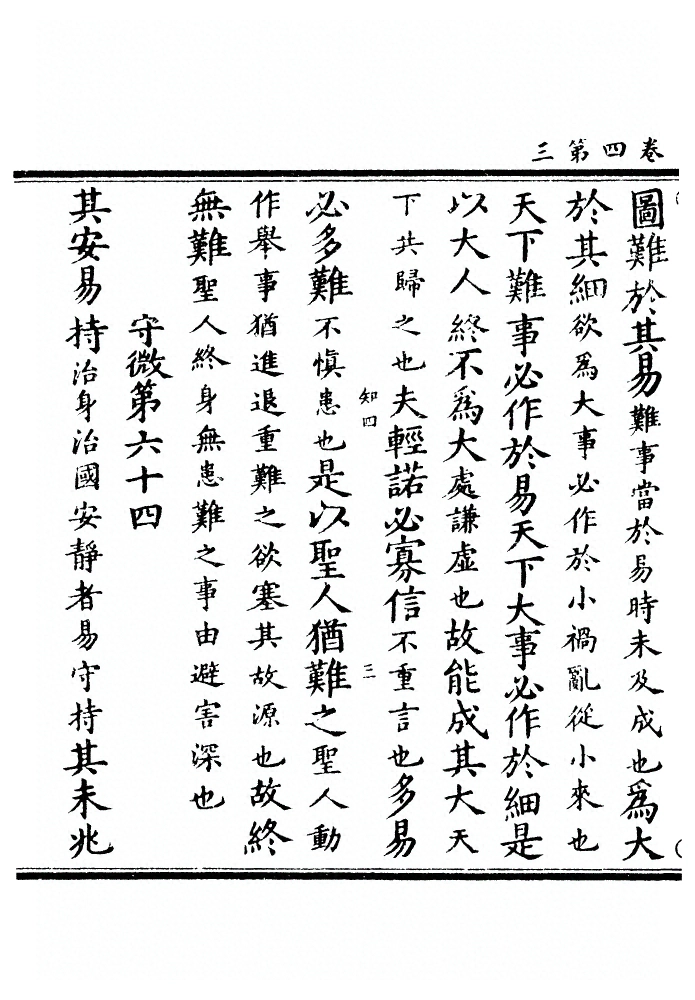 卷四第三
圖難於其易難事當於易時未及成也爲大
於其細欲爲大事必作於小禍亂從小來也
天下難事必作於易天下大事必作於細是
以大人終不爲大處謙虛也故能成其大天
下共歸之也夫輕諾必寡信不重言也多易
知四
三
必多難不慎患也是以聖人猶難之聖人動
作舉事猶進退重難之欲塞其故源也故終
無難聖人終身無患難之事由避害深也
守微第六十四
其安易持治身治國安靜者易守持其未兆